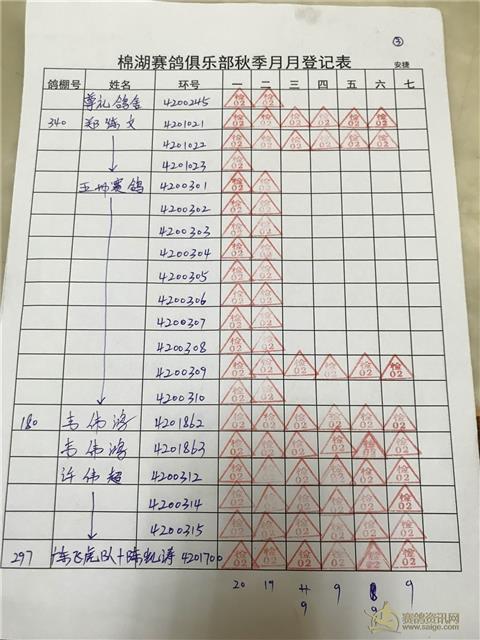 ③
棉湖赛鸽俱乐部秋季月月登记表
安捷
鸽棚号 姓名 环号 一 二 三 四 五 六 七
尊礼鸽舍 4200245 检02 检02
340 郑 文 4201021 检02 检02 检02 检02 检02 检02
4201022 检02 检02 检02 检02 检02 检02
4201023 检02
赛鸽 4200301 检02 检02
4200302 检02 检02
4200303 检02 检02
4200304 检02 检02
4200305 检02 检02
4200306 检02 检02
4200307 检02 检02
4200308 检02 检02
4200309 检02 检02 检02 检02 检02 检02
4200310 检02 检02
180 韦伟鸿 4201862 检02 检02 检02 检02 检02 检02
韦伟鸿 4201863 检02 检02 检02 检02 检02 检02
许伟超 4200312 检02 检02 检02 检02 检02 检02
4200314 检02 检02 检02 检02 检02 检02
4200315 检02 检02 检02 检02 检02 检02
297 陈飞虎队+陈凯涛 4201700 检02 检02 检02 检02 检02 检02
20 19 9 9 9 9
赛鸽资讯网
www.saige.com